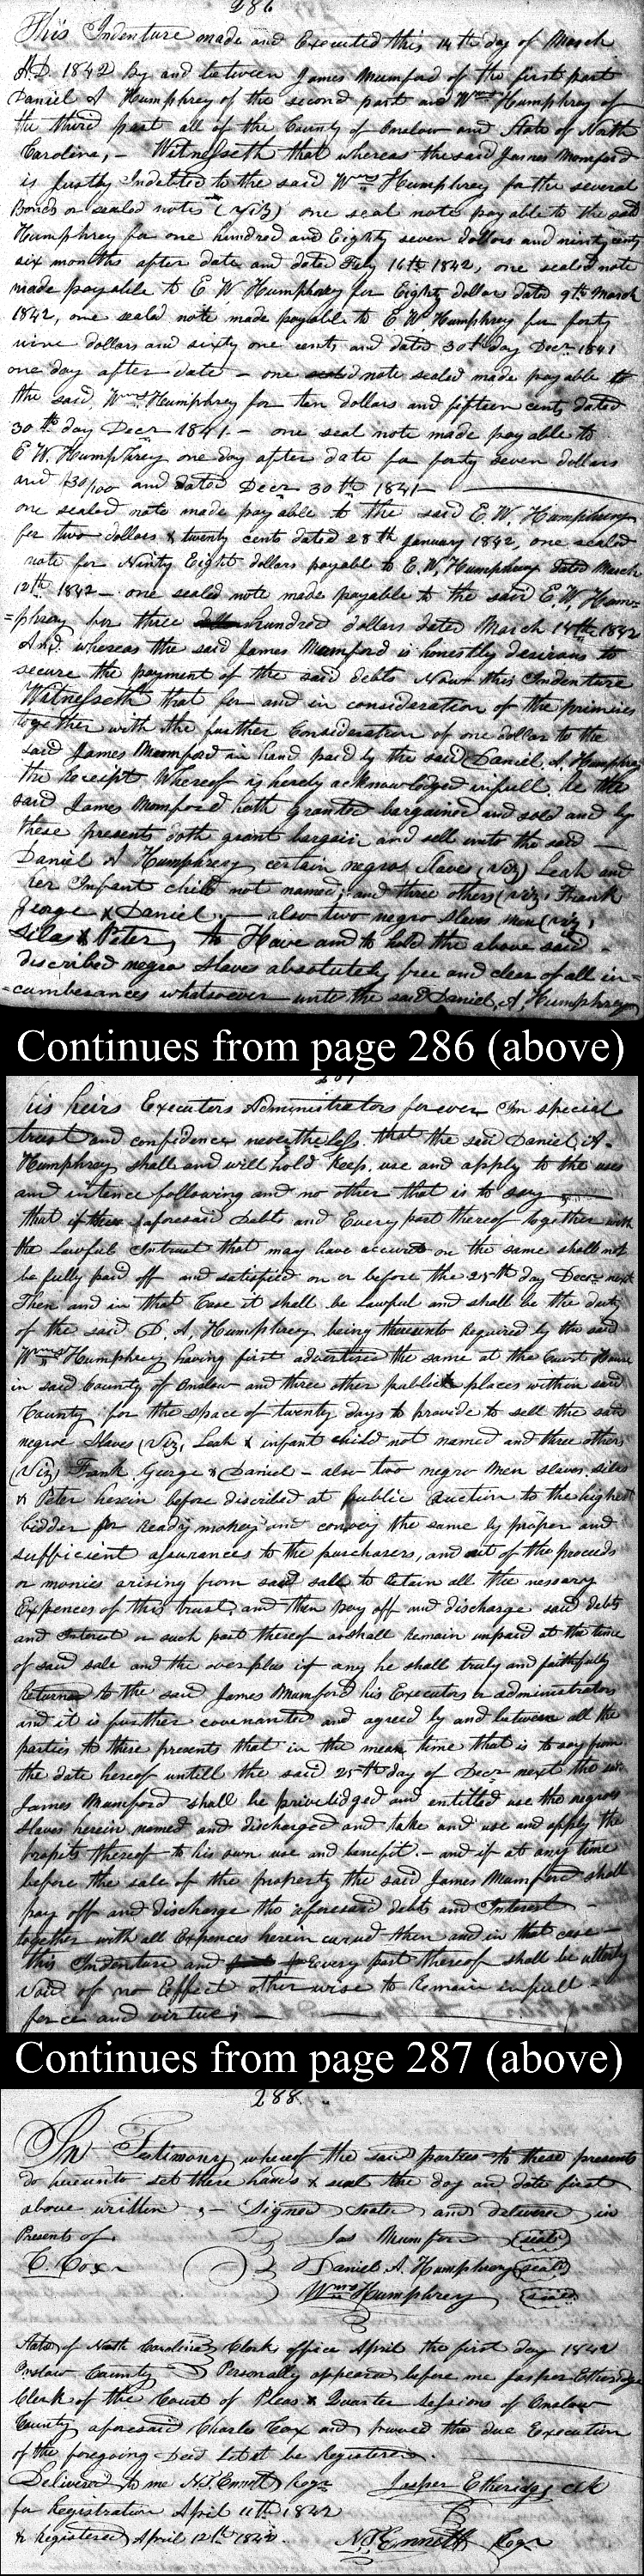 286
This Indenture made and Executed this 14th day of March
A.D. 1842 By and between James Mumford of the first part
Daniel A Humphrey of the second part and Wms Humphrey of
the third part all of the County of Onslow and State of North
Carolina, – Witnesseth that whereas the said James Momford
is Justly Indebted to the said Wms Humphrey for the several
Bonds or sealed notes (viz) one seal note payable to the said
Humphrey for one hundred and Eighty seven dollars and ninty cents
six months after date and dated Feby 16th 1842, one sealed note
made payable to E W Humphrey for Eighty dollar dated 9th March
1842, one sealed note made payable to E W Humphrey for forty
nine dollars and sixty one cents and dated 30th day Decr 1841
one day after date – one note sealed made payable to
the said Wms Humphrey for ten dollars and fifteen cents dated
30th day Decr 1841 – one seal note made payable to
E W. Humphrey one day after date for forty seven dollars
and 30/100 and dated Decr 30th 1841 –
one sealed note made payable to the said E.W. Humphrey
for two dollars & twenty cents dated 28th January 1842, one sealed
note for Ninty Eight dollars payable to E.W. Humphrey dated March
12th 1842 – one sealed note made payable to the said E.W. Hum=
=phrey for three hundred dollars dated March 14th 1842
And whereas the said James Mumford is honestly desirous to
secure the payment of the said debts Now this Indenture
Witnesseth that for and in consideration of the primises
together with the further Consideration of one dollar to the
said James Mumford in hand paid by the said Daniel A. Humphrey
the Receipt Whereof is hereby acknowledged infull he the
said James Momford hath granted bargained and sold and by
these presents doth grant bargain and sell unto the said –
Daniel A Humphrey certain negros Slaves (viz) Leah and
her Infant child not named; and three others (viz, Frank
George & Daniel; – also two negro slaves men (viz,
Silas & Peter, To Have and to hold the above said –
discribed negro slaves absolutely free and clear of all in=
=cumberances whatsoever unto the said Daniel, A, Humphrey
Continues from page 286 (above)
his heirs Executors Administrators forever In special
trust and confidence nevertheless that the said Daniel A.
Humphrey shall and will hold keep, use and apply to the uses
and intence following and no other that is to say
that if the aforesaid Debts and Every part thereof together with
the Lawful Intrust that may have accured on the same shall not
be fully paid off and satisfied on or before the 25th day Decr next
Then and in that Case it shall be Lawful and shall be the duty
of the said D. A, Humphrey being thereunto Required by the said
Wms Humphrey having first advertised the same at the Court House
in said County of Onslow and three other public places within said
County for the space of twenty days to provide to sell the said
negroe Slaves (viz, Leah & infant child not named and three others
(Viz) Frank George & Daniel – also two negro men slaves. silas
& Peter herein before discribed at public Auction to the highest
bidder for Ready money and convey the same by proper and
sufficient assurances to the purchasers, and out of the proceeds
or monies arising from said sale to Retain all the nessary
Expences of this trust, and then pay off and discharge said debts
and Interest or such part thereof as shall Remain unpaid at the time
of said sale and the overplus if any he shall truly and faithfully
Returned to the said James Mumford his Executors or administrators
and it is further covenanted and agreed by and between all the
parties to these presents that in the mean time that is to say from
the date hereof untill the said 25th day of Decr next the sd.
James Mumford shall be priviledged and entitled use the negros
slaves herein named and discharged and take and use and apply the
proper thereof to his own use and benefit. – and if at any time
before the sale of the property the said James Mumford shall
pay off and discharge the aforesaid debts and Interest –
together with all Expences herein cured then and in that case –
this Indenture and Every part thereof shall be utterly
void of no Effect otherwise to Remain infull –
force and virtue; –
Continues from page 287 (above)
288.
In Testimony whereof the said parties to these presents
do hereunto set there hands & seal the day and date first
above written; – Signed sealed and delivered in
Presents of Jas Mumford (seal)
C. Cox Daniel A. Humphrey (seal)
Wms Humphrey (seal)
State of North Carolina Clerks office April the first day 1842
Onslow County Personally appeared before me Jasper Etheridge
Clerk of the Court of Pleas & Quarter Sessions of Onslow
County aforesaid Charles Cox and proved the due Execution
of the foregoing Deed Let it be Registered.
Delivered to me N.T. Ennett Regr Jasper Etheridge Clk
for Registration April 11th 1842
& Registered April 12th 1842. N.T. Ennett Regr